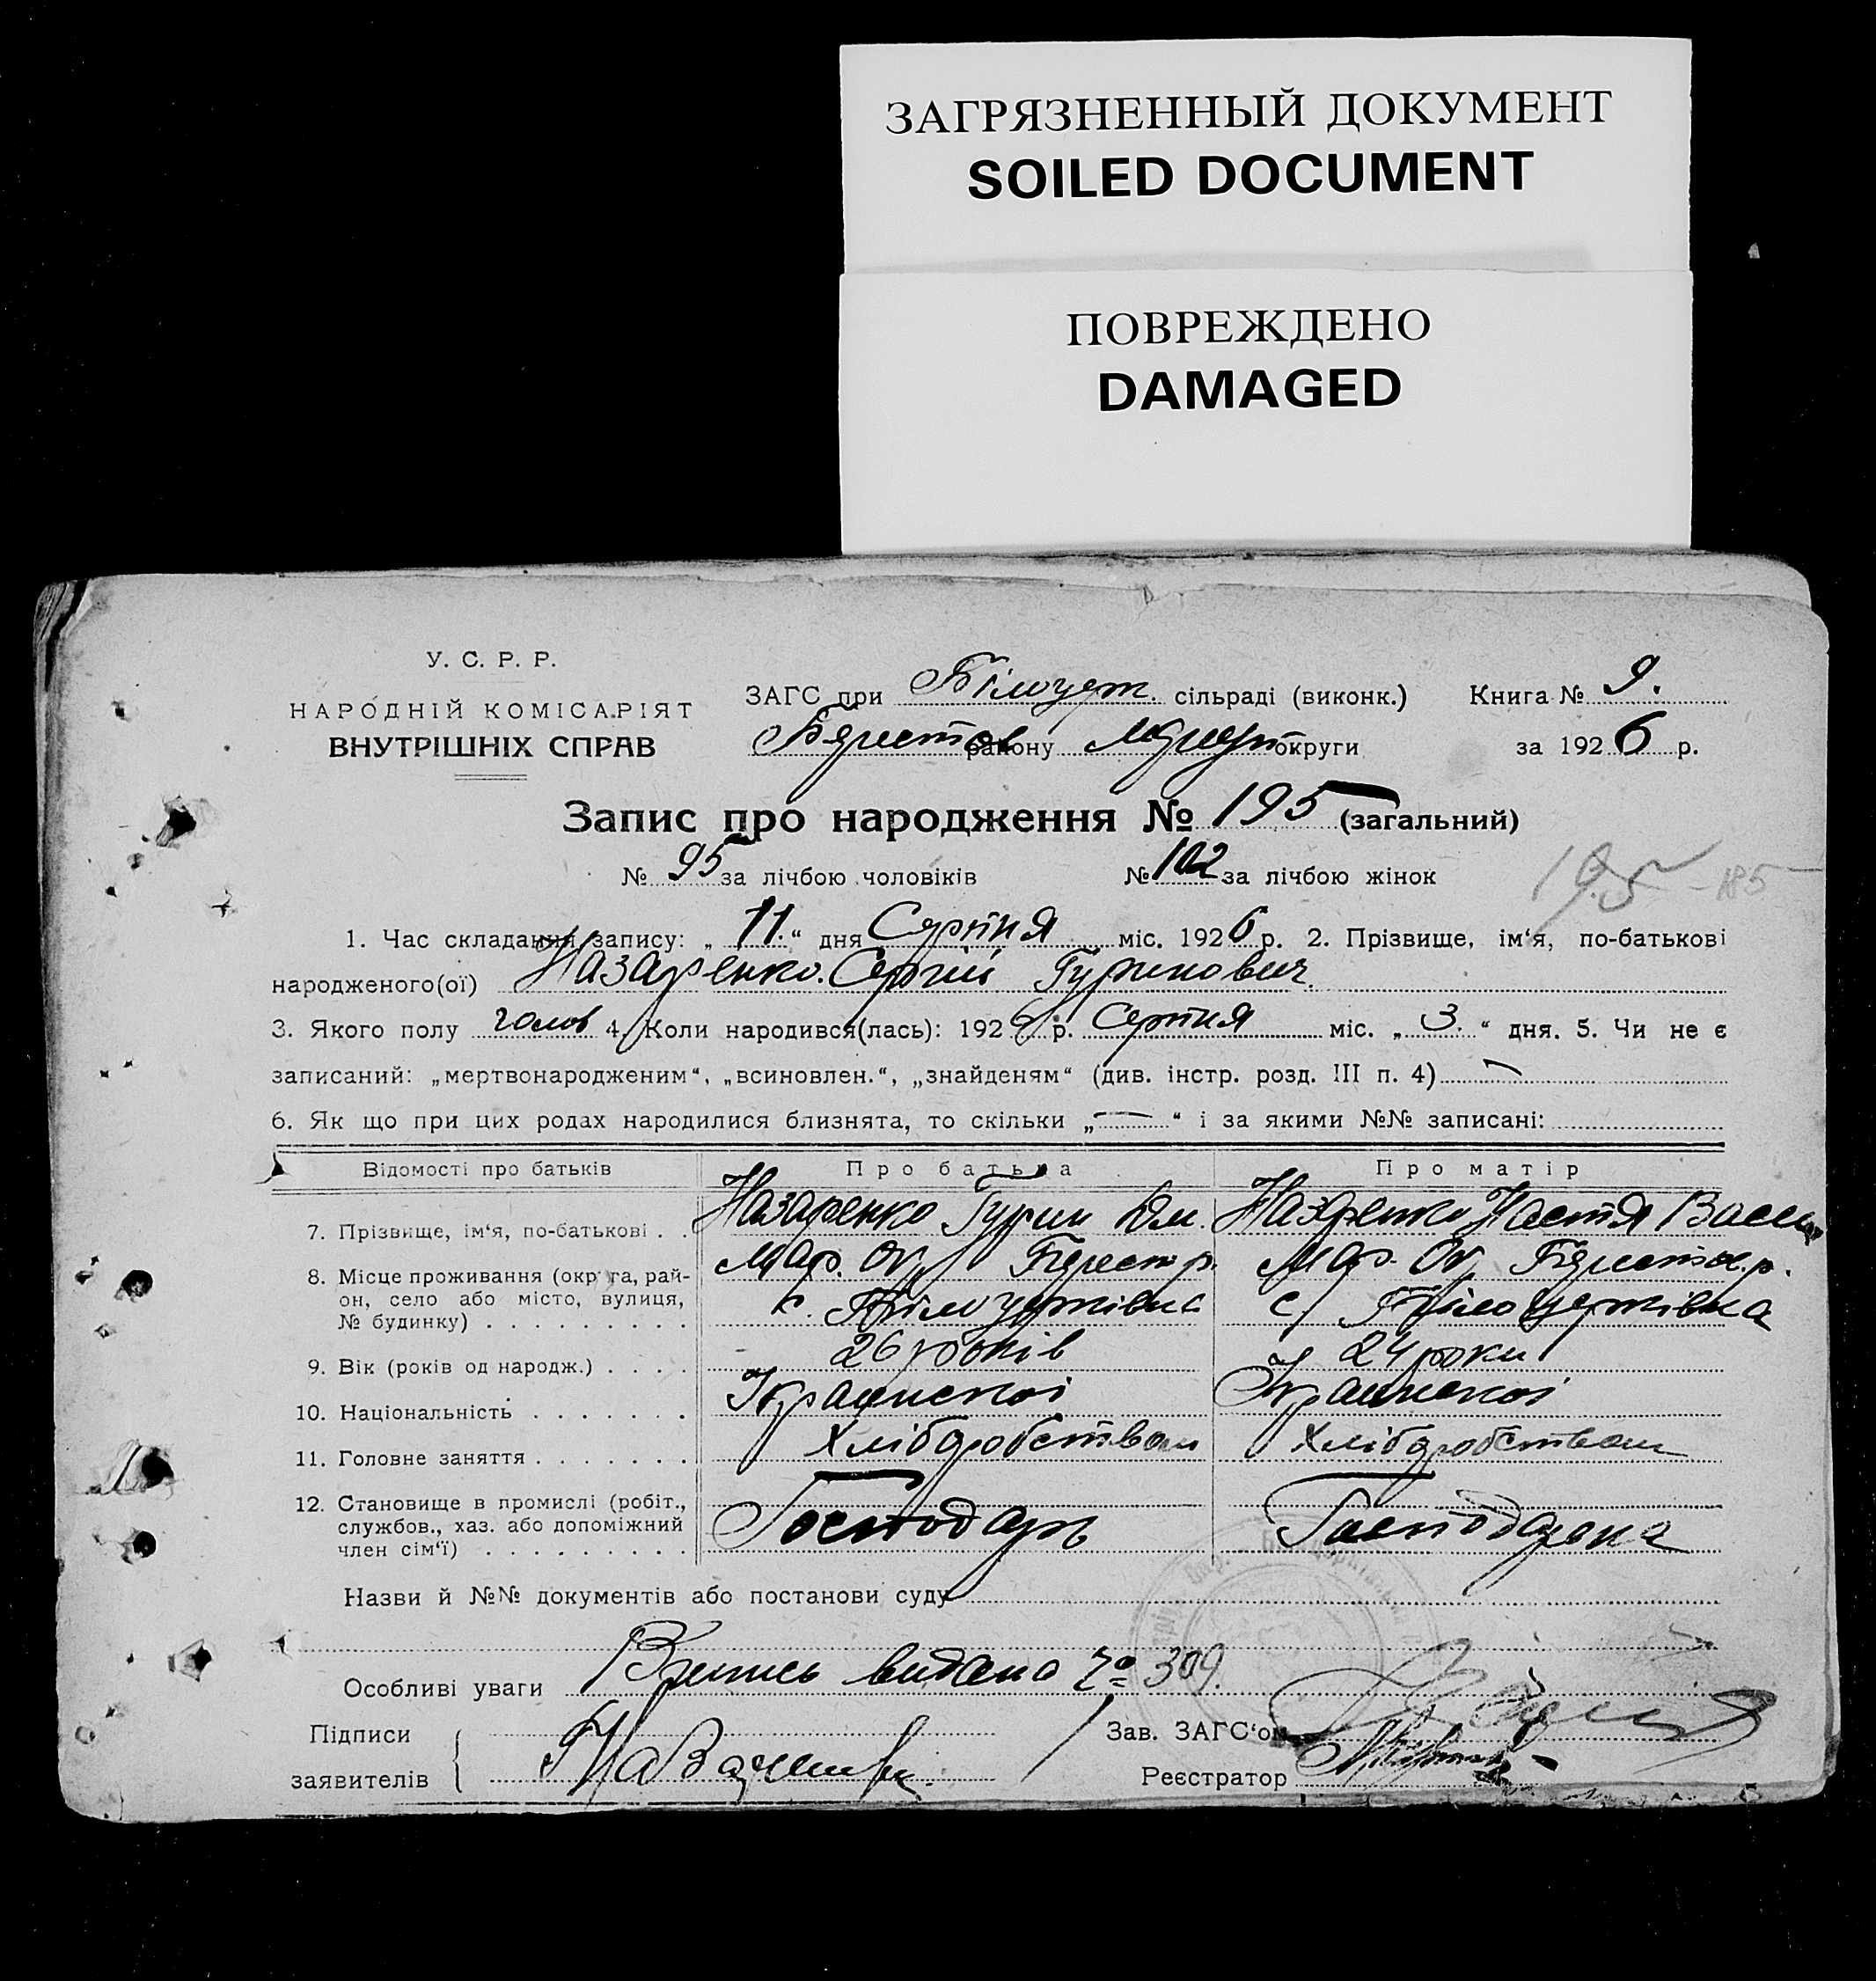 ЗАГРЯЗНЕННЫЙ ДОКУМЕНТ
SOILED DOCUMENT
ПОВРЕЖДЕНО
DAMAGED
У. С. Р. Р.
НАРОДНІЙ КОМІСАРІЯТ
ВНУТРІШНІХ СПРАВ
ЗАГС при Білоцерк. сільраді (виконк.) Книга № 9.
району округи за 1926 р.
Запис про народження № 195 (загальний)
№ 95 за лічбою чоловіків № 102 за лічбою жінок
195 - 185
1. Час складання запису: „ 11. “ дня Серпня міс. 1926 р. 2. Прізвище, ім‘я, по-батькові
народженого(ої) Назаренко Сергій Гуринович.
3. Якого полу чолов 4. Коли народився(лась): 1926 р. Серпня міс. „ 3. “ дня. 5. Чи не є
записаний: „мертвонародженим“, „всиновлен.“, „знайденям“ (див. інстр. розд. III п. 4) —
6. Як що при цих родах народилися близнята, то скільки „ — “ і за якими №№ записані:
Відомості про батьків Про батька Про матір
7. Прізвище, ім‘я, по-батькові . . Назаренко Гурин Назаренко Настя Васил
8. Місце проживання (округа, рай- Мар. Ок. Берест р. Мар. Ок. Берестов. р.
он, село або місто, вулиця, с. Білоцерківка с. Білоцерківка
№ будинку)
9. Вік (років од народж.) . . . . 26 років 24 роки
10. Національність . . . . . . . Украинскоі Украинскоі
11. Головне заняття . . . . . . . Хліборобством Хліборобством
12. Становище в промислі (робіт.,
службов., хаз. або допоміжний Господарь Господарка
член сім‘ї) . . . . . . . . .
Назви й №№ документів або постанови суду
Особливі уваги видана № 309.
Підписи Зав. ЗАГС‘ом
заявителів Реєстратор